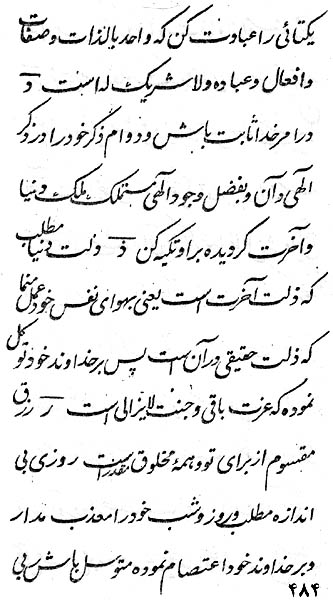 یکتائی را عبادت کن که واحد بالذات وصفات
وافعال وعباده ولا شریک له است ذ
در امر خدا ثابت باش و دوام ذکر خود را در ذکر
الهی دان و بفضل وجود الهی مستملک ملک دنیا
و آخرت گردیده بر او تکیه کن ذ ذلت دنیا مطلب
که ذلت آخرت است یعنی بهوای نفس خود عمل منما
که ذلت حقیقی در آن است پس بر خداوند خود توکل
نموده که عزت باقی و جنت لایزالی است ر رزق
مقسوم از برای تو و همهٔ مخلوق مقدر است روزی بی
اندازه مطلب و روز و شب خود را معذب مدار
و بر خداوند خود اعتصام نموده متوسل باش بی
۴۸۴